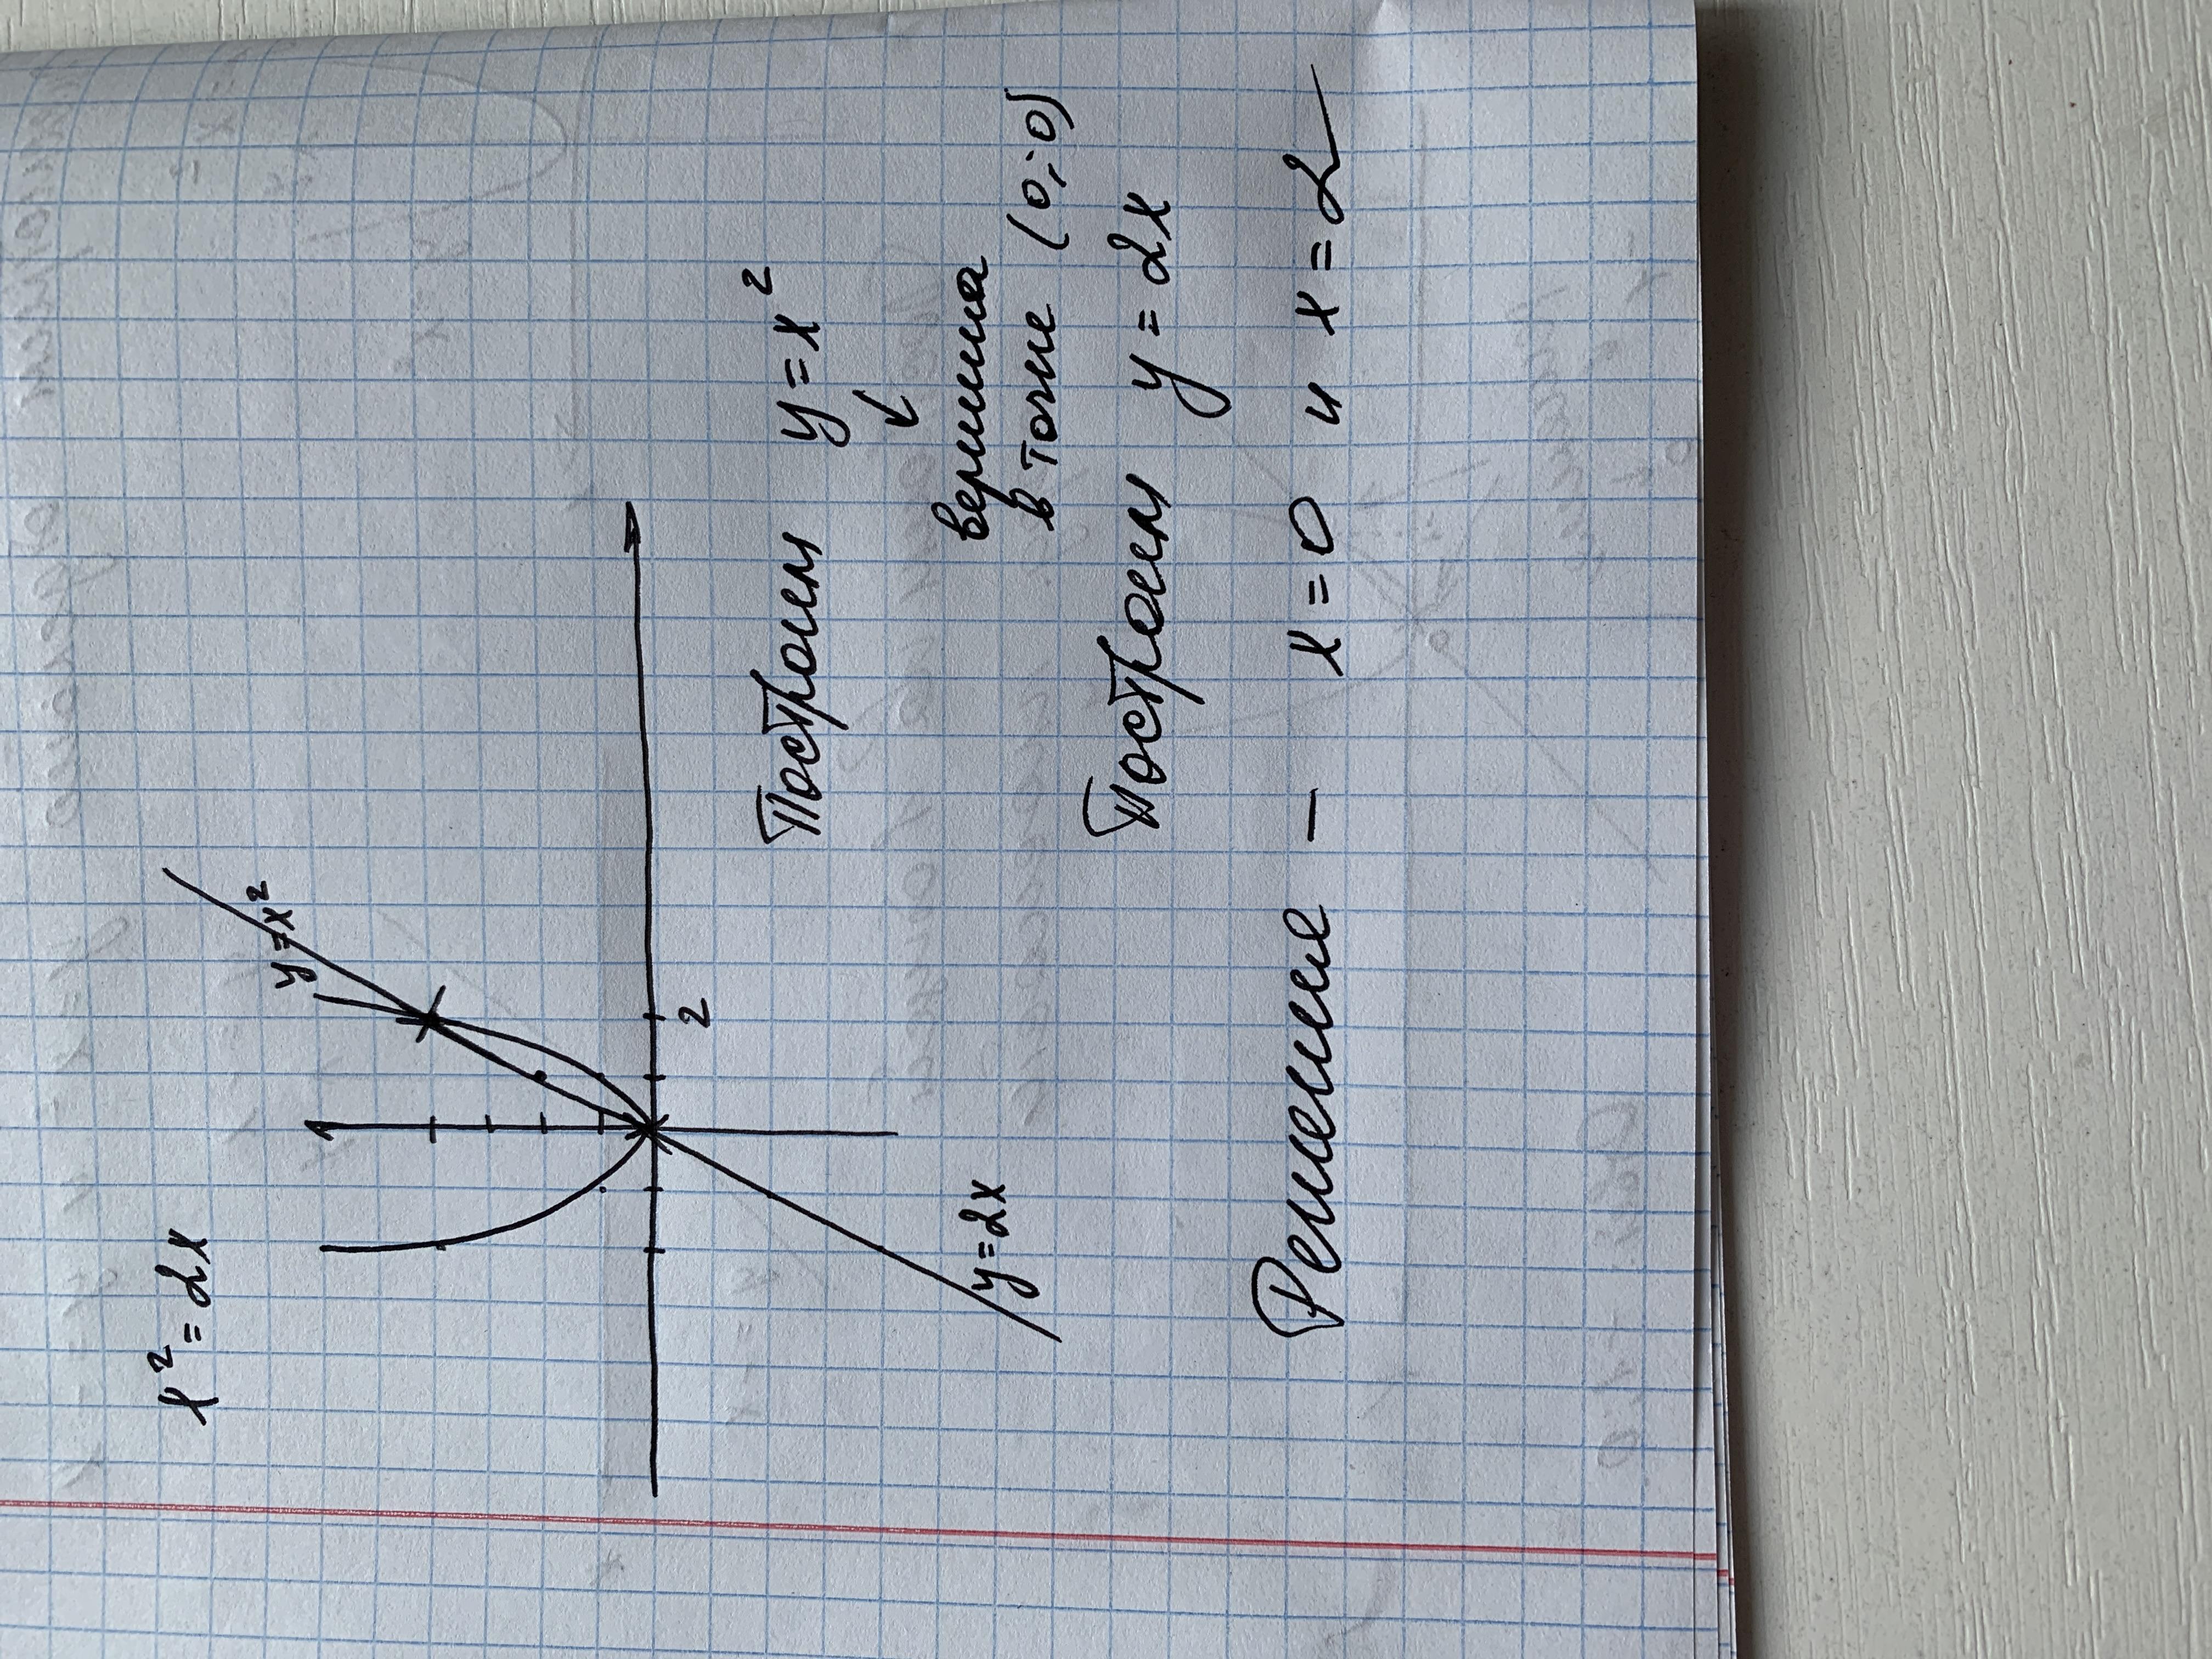 x² = 2x
y=x²
2
y=2x
Построим y = x²
↓
вершина
в точке (0;0)
Построим y = 2x
Решение — x=0 и x=2